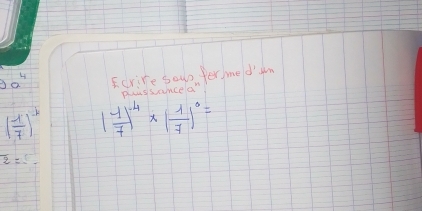 Ecrire sous forme d'un
puissance aⁿ
(1/7)⁻⁴ × (1/7)³ =
a⁴
(1/7)